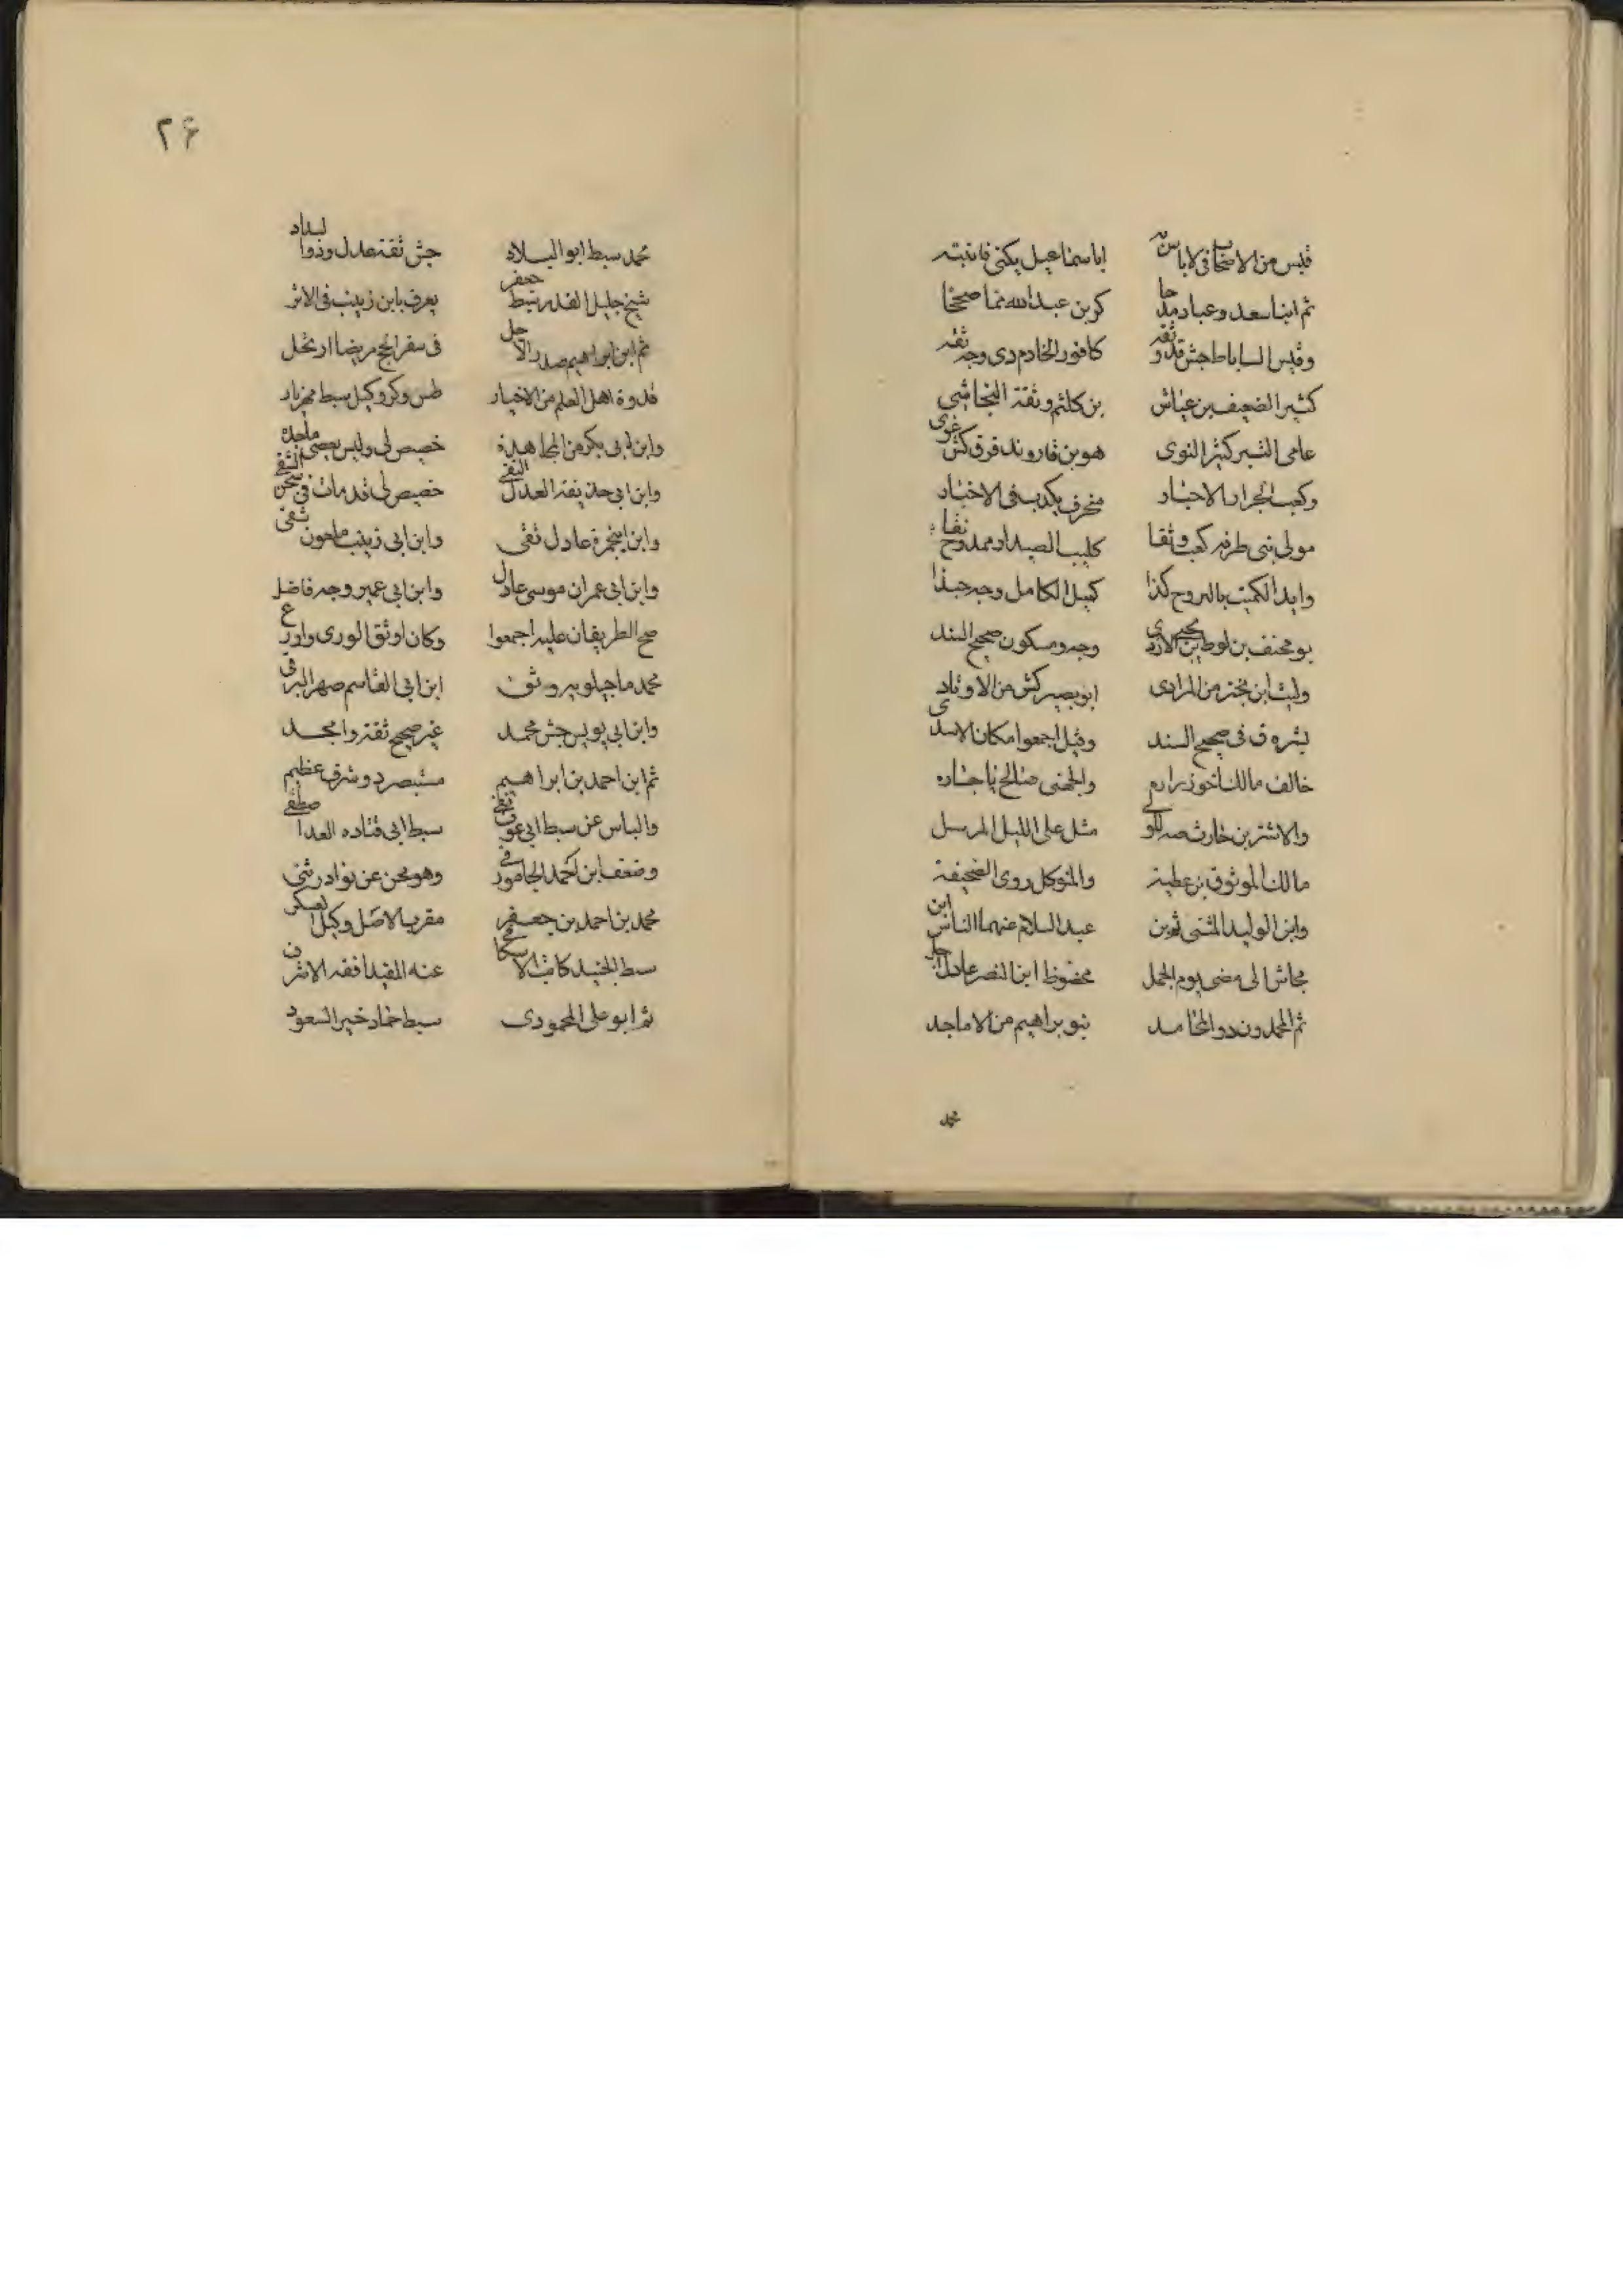 قيس من الاصحاب في لا باس به ابا سماعيل يكنى فانتبه
ثم ابنا سعد وعباد مدحا كر بن عبد الله مما صححا
وقيس الساباط جش قد وثقه كافور الخادم دى وجه ثقه
كثير الضعيف بن عياش بن كلثم وثقة النجاشي
عامى الشير كثير النوى هو بن قاروند قرق كش غوى
وكعب الاحبار منحرف يكذب في الاخبار
مولى بنى طرفه كعب وثقا كليب الصيداو ممدوح
وايد الكميت بالروح كذا كميل الكامل وجه حبذا
بو مخنف بن لوط بن يحيى الازدى وجه ومسكون صحيح السند
وليث ابن بختر من المرادى ابو بصير كش من الاوتاد
بشره ق في صحيح السند وقيل اجمعوا مكان الاسدى
خالف مالك اخو زرارة والجهنى صالح
والاشتر بن حارث مثل على الليل المرسل
مالك الموثوق بن عطية والمتوكل روى الصحيفة
وابن الوليد المثنى ثم بن عبد السلام عنهما الناس ابن
مجاش الى مضى يوم الجمل محفوظ ابن النصر عادل اجل
ثم المحمدون ذو المحامد بنو براهيم من الاماجد
محمد
٢۶
محمد سبط ابو البلاد جش ثقة عدل وذو السداد
شيخ جليل القدر سبط جعفر يعرف بابن زينب في الاثر
ثم ابن ابراهيم صدر الاجل في سفر الحج مريضا ارتحل
قدوة اهل العلم من الاخيار طس وكر وكيل سبط مهزيار
وابن ابى بكر من المجاهدة خصيص لى وليس يعصى ماجده
وابن ابي حذيفة العدل التقى خصيص لى قد مات في سجن الشقى
وابن ابي نجرة عادل ثقى وابن ابي زينب ملعون شقى
وابن ابي عمران موسى عادل وابن ابي عمير وجه فاضل
صح الطريقان عليه اجمعوا وكان اوثق الورى واورع
محمد ماجيلويه وثق ابن ابي القاسم صهر البرقى
وابن ابي يونس جش محمد غير صحيح ثقة وامجد
ثم ابن احمد بن ابراهيم مستبصر ذو شرف عظيم
والباس عن سبط ابي عوف نفى سبط ابي قتاده العدا
وضعف ابن احمد الجامورى وهو نحن عن نوادر
محمد بن احمد بن جعفر مقرب الاصل وكيل العسكر
سبط الجنيد كاتب الاسكافى عنه المفيد افقه الاشرف
ثم ابو على المحمودى سبط حماد خير السعود